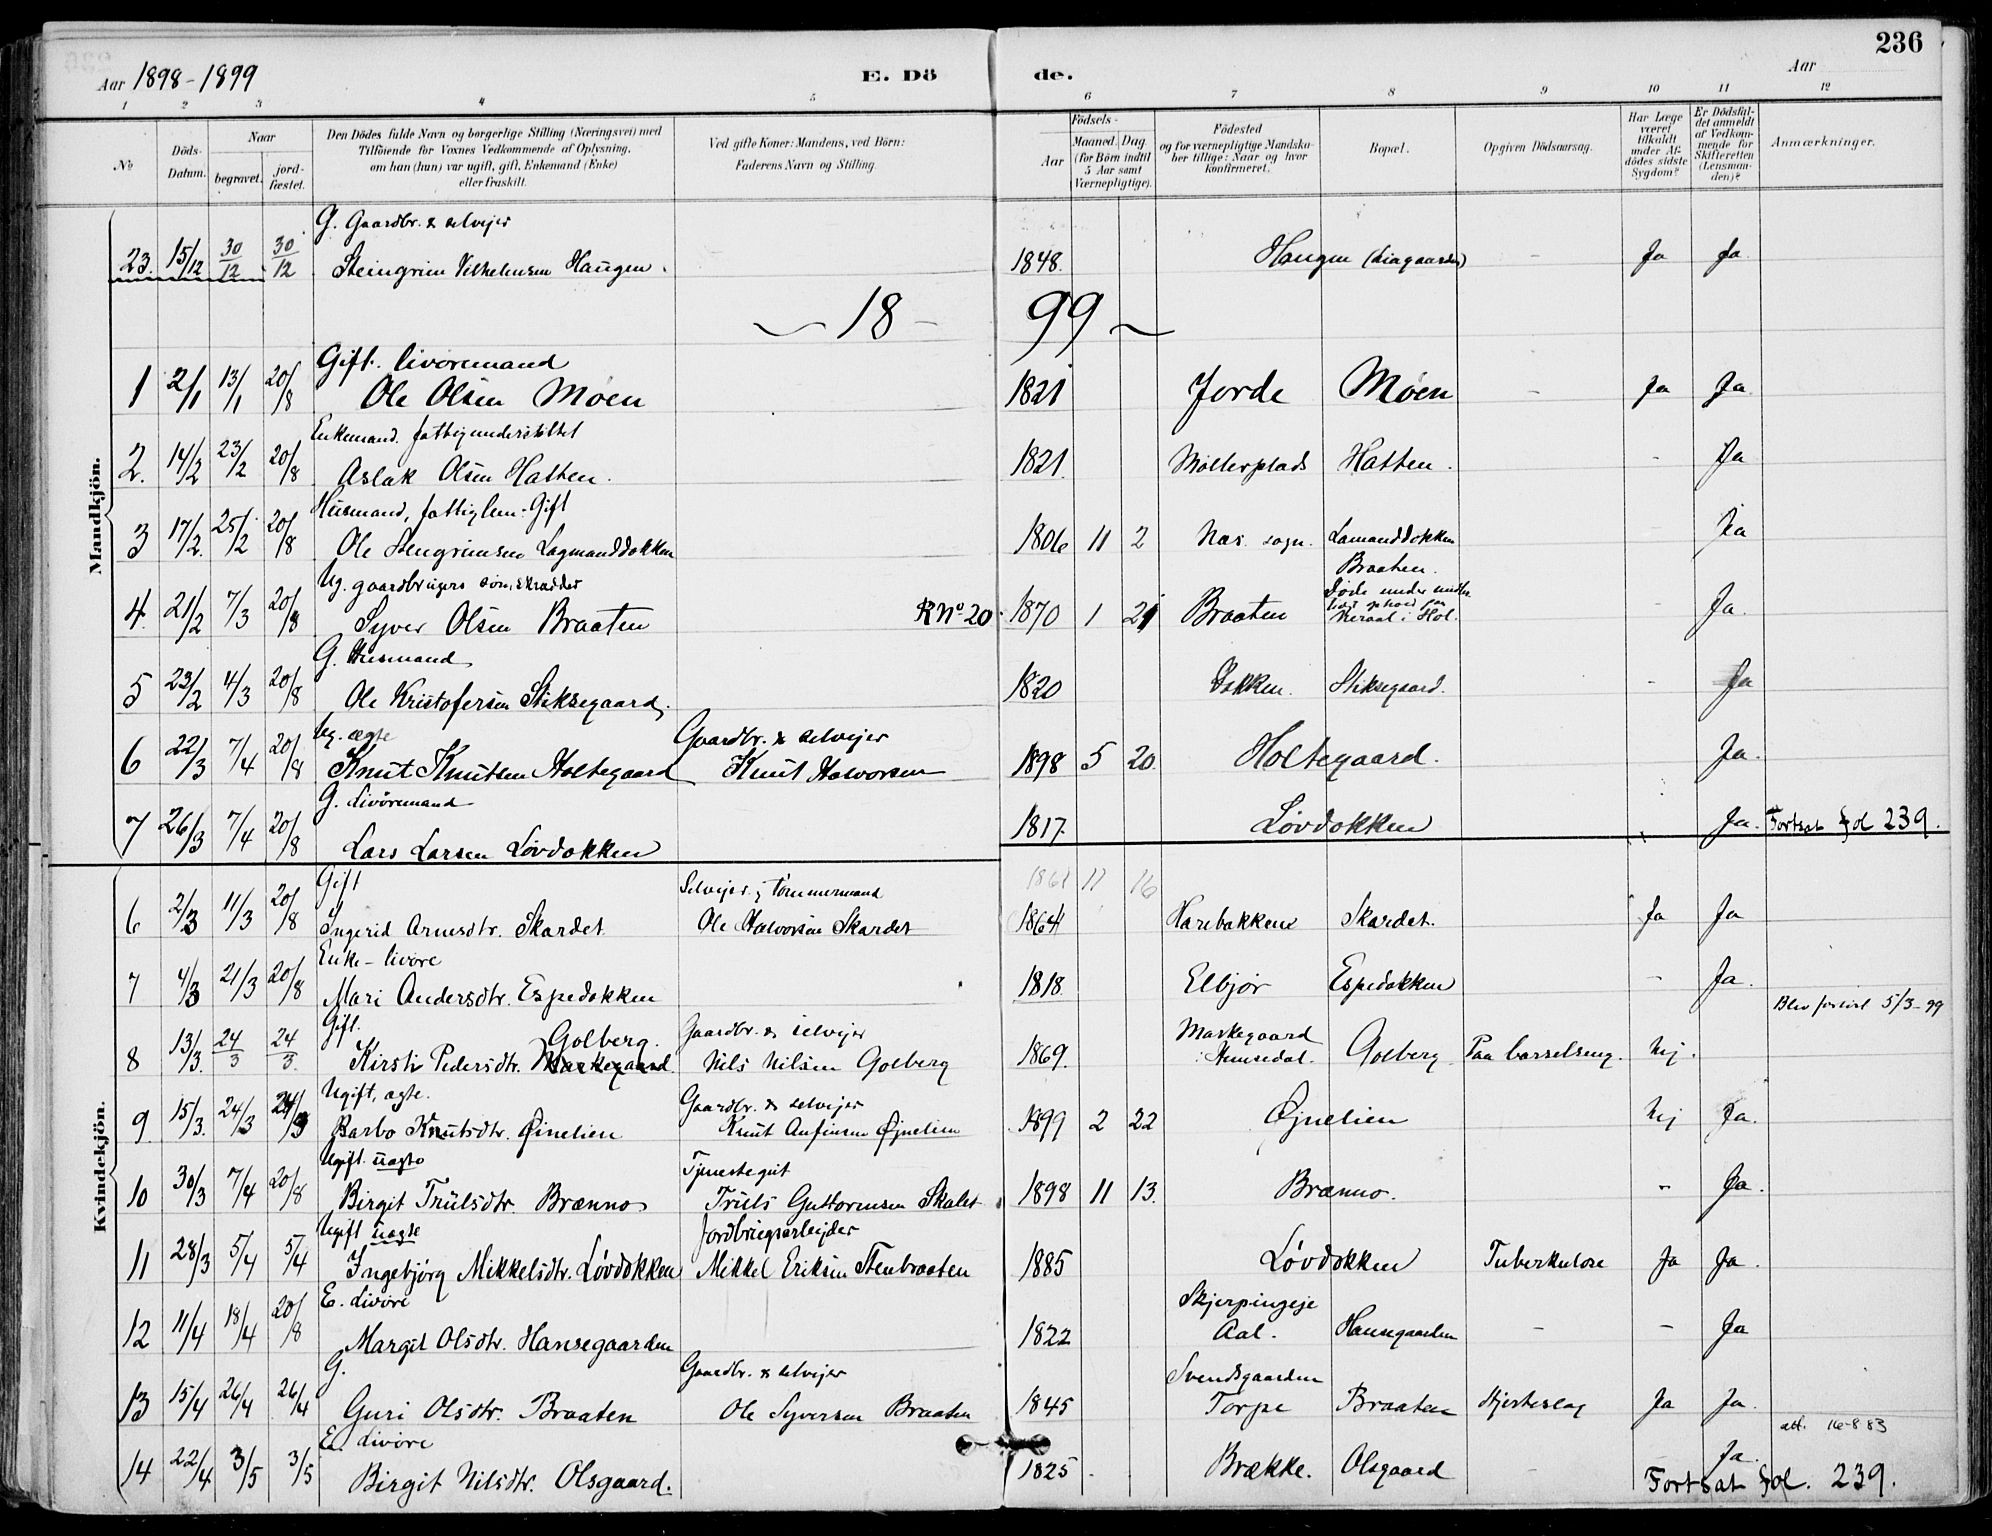 236
Aar 1898-1899
E. Dö
de.
Aar
1 2 3 4 5 6 7 8 9 10 11 12
No
Döds-Datum.
Naar
begravet.
jord-fæstet.
Den Dödes fulde Navn og borgerlige Stilling (Næringsvei) med
Tilföiende for Voxnes Vedkommende af Oplysning,
om han (hun) var ugift, gift, Enkemand (Enke)
eller fraskilt.
Ved gifte Koner: Mandens, ved Börn:
Faderens Navn og Stilling.
Födsels-
Aar
Maaned. Dag
(for Börn indtil
5 Aar samt
Værnepligtige).
Födested
og for værnepligtige Mandska-
ber tillige: Naar og hvor
konfirmeret.
Bopæl.
Opgiven Dödsaarsag.
Har Læge
været
tilkaldt
under Af-
dödes sidste
Sygdom?
Er Dödsfal-
det anmeldt
af Vedkom-
mende for
Skifteretten
(Lensman-
den)?
Anmærkninger.
Mandkjön.
G. Gaardbr. & selvejer
23. 15/12 30/12 30/12 Steingrim Vilhelmsen Haugen. 1848. Haugen (Liagaarden) - Ja Ja
18 - 99
Gift. livöremand
1 2/1 13/1 20/8 Ole Olsen Moen 1821 Jorde Moen - Ja Ja.
Enkemand. fattigunderstöttet
2. 14/2 23/2 20/8 Aslak Olsen Hatten. 1821. Mölterplads Hatten. - Ja
Husmand, fattiglem. Gift
3 17/2. 25/2 20/8 Ole Stengrimsen Lagmanddokken 1806 11 2 Næs sogn. Lamanddokken - Ja
Ug. gaardbrugers sön, skrædder
Braaten.
Döde under midler
tidig ophold paa
4. 21/2 7/3 20/8 Syver Olsen Braaten R No 20. 1870 1 21 Braaten Neraal i Hol. - Ja.
G. Husmand
5 23/2 4/3 20/8 Ole Kristofersen Stiksegaard. 1820 Bakken. Stiksegaard. - Ja
Ug. ægte Gaardbr. & selvejer
6 22/3 7/4 20/8 Knut Knutsen Holtegaard Knut Halvorsen 1898 5 20. Holtegaard. Ja.
G. Livöremand
7 26/3 7/4 20/8 Lars Larsen Lövdokken 1817. Lövdokken Ja. Fortsat Fol 239.
Kvindekjön.
Gift Selvejer & Tömmermand 1861 11 16
6 2/3 11/3 20/8 Ingerid Arnesdtr. Skardet Ole Halvorsen Skardet 1864 Harebakken Skardet. Ja Ja
Enke - livöre
7 4/3 21/3 20/8 Mari Andersdtr. Espedokken 1818. Elbjör Espedokken - Ja.
Gift. Golberg. Gaardbr. & selvejer Markegaard Blev forlöst 5/3-99
8 13/3. 24/3 24/3. Kirsti Pedersdtr. Markegaard Nils Nilsen Golberg 1869. i Hemsedal. Golberg. Paa barselseng. Nej.
Ugift, ægte. Gaardbr. & selvejer
9 15/3. 24/3 24/3 Barbo Knutsdtr. Öinelien Knut Anfinsen Øjnelien 1899 2 22 Øjnelien Nej Ja.
Ugift. uægte Tjenestegut
10 30/3 7/4 20/8 Birgit Trulsdtr. Brænno Truls Guttormsen Skalet 1898 11 13. Brænno. - Ja.
Ugift uægte Jordbrugsarbejder
11 28/3 5/4 5/4 Ingebjörg Mikkelsdtr. Lövdokken Mikkel Eriksen Stenbraaten 1885 Lövdokken Tuberkulose Ja Ja.
E. Livöre Skjerpingeje
12 11/4 18/4 20/8 Margit Olsdtr. Hansegaarden 1822 Aal. Hansegaarden - - Ja
G. Gaardbr. & selvejer Svendsgaarden
13 15/4 26/4 26/4 Guri Olsdtr. Braaten Ole Syversen Braaten 1845 Torpe Braaten Hjerteslag Ja Ja.
E. Livöre att. 16-8 83
14 22/4 3/5 3/5 Birgit Nilsdtr. Olsgaard. 1825. Brække. Olsgaard - Ja.
Fortsat Fol. 239.